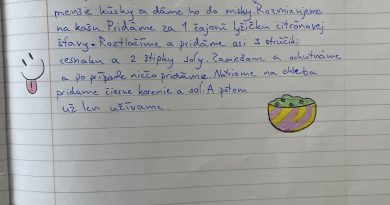 menšie kúsky a dáme ho do misky. Rozmixujeme
na kašu. Pridáme za 1 čajovú lyžičku citrónovej
šťavy. Roztlačíme a pridáme asi 3 strúčiki
cesnaku a 2 štipky soly. Zamiešame a ochutnáme
a po prípade niečo pridáme. Natrieme na chleba
pridame čierne korenie a soľ. A potom
už len užívame.